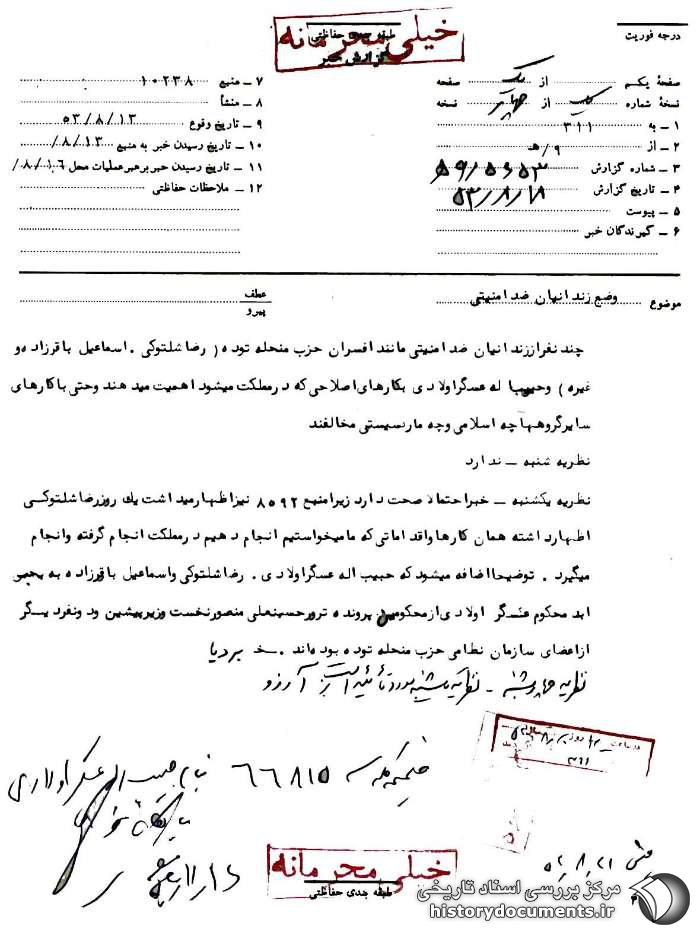 خیلی محرمانه
طبقه بندی حفاظتی
گزارش خبر
درجه فوریت
صفحهٔ یکم از یک صفحه
نسخهٔ شماره یک از چهار نسخه
۱ – به ۳۱۱
۲ – از ۹/هـ
۳ – شماره گزارش
۴ – تاریخ گزارش ۵۳/۸/۱۸
۵ – پیوست
۶ – گیرندگان خبر
۷ – منبع ۱۰۲۳۸
۸ – منشأ
۹ – تاریخ وقوع ۵۳/۸/۱۳
۱۰ – تاریخ رسیدن خبر به منبع ۸/۱۳/
۱۱ – تاریخ رسیدن خبر برهبر عملیات محل ۸/۱۶/
۱۲ – ملاحظات حفاظتی
موضوع وضع زندانیان ضد امنیتی
عطف
پیرو
چند نفر از زندانیان ضد امنیتی مانند افسران حزب منحله توده ( رضا شلتوکی . اسماعیل باقرزاده و
غیره ) وحبیب اله عسگراولادی بکارهای اصلاحی که در مملکت میشود اهمیت میدهند وحتی باکارهای
سایر گروهها چه اسلامی وچه مارسیستی مخالفند
نظریه شنبه – ندارد
نظریه یکشنبه – خبر احتمالا صحت دارد زیرا منبع ۸۵۹۲ نیز اظهار میداشت یك روز رضا شلتوکی
اظهارداشته همان کارها واقداماتی که ما میخواستیم انجام دهیم در مملکت انجام گرفته وانجام
میگیرد . توضیحا اضافه میشود که حبیب اله عسگراولادی . رضا شلتوکی واسماعیل باقرزاده به حبس
ابد محکوم عسگر اولادی از محکومین پرونده ترور حسنعلی منصور نخست وزیر پیشین ودونفر دیگر
از اعضای سازمان نظامی حزب منحله توده بوده اند . خ بردیا
نظریه چهارشنبه – نظریه یکشنبه مورد تأئید است . آرزو
ضمیمه کلاسه ۶۶۸۱۵ بنام حبیب اله عسگراولادی
۵۳/۸/۲۱
خیلی محرمانه
طبقه بندی حفاظتی
مرکز بررسی اسناد تاریخی
historydocuments.ir